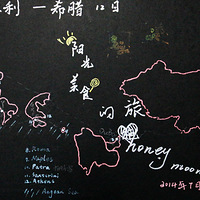 利一希腊 12日
阳光
美食
的旅
honey
moon
1. Roma
2. Naples
3. Patra
4. Santorini
5. Athens
Aegean Sea